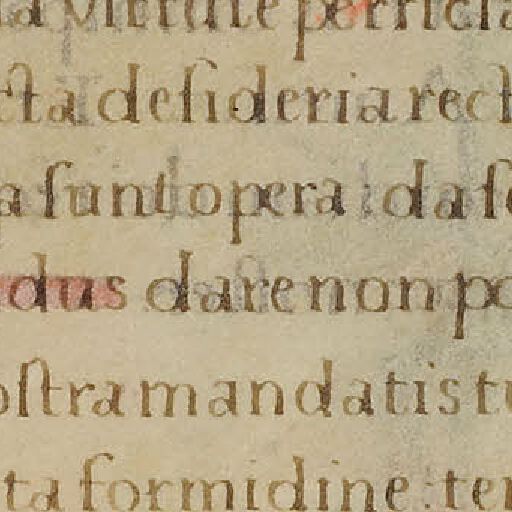 a virtute perficia
cta desideria rect
a sunt opera; da se
dus dare non po
ostra mandatis tu
ta formidine: tem